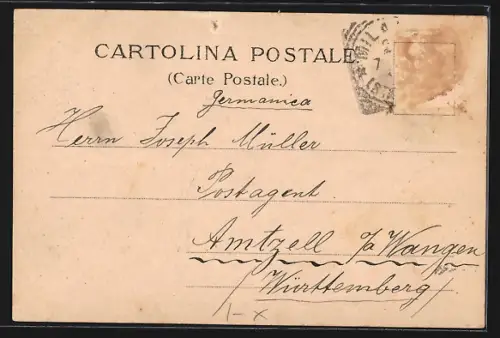 CARTOLINA POSTALE
(Carte Postale.)
Germanica
Herrn Joseph Müller
Postagent
Amtzell p/a Wangen
(Württemberg)
MILA
7
1-x